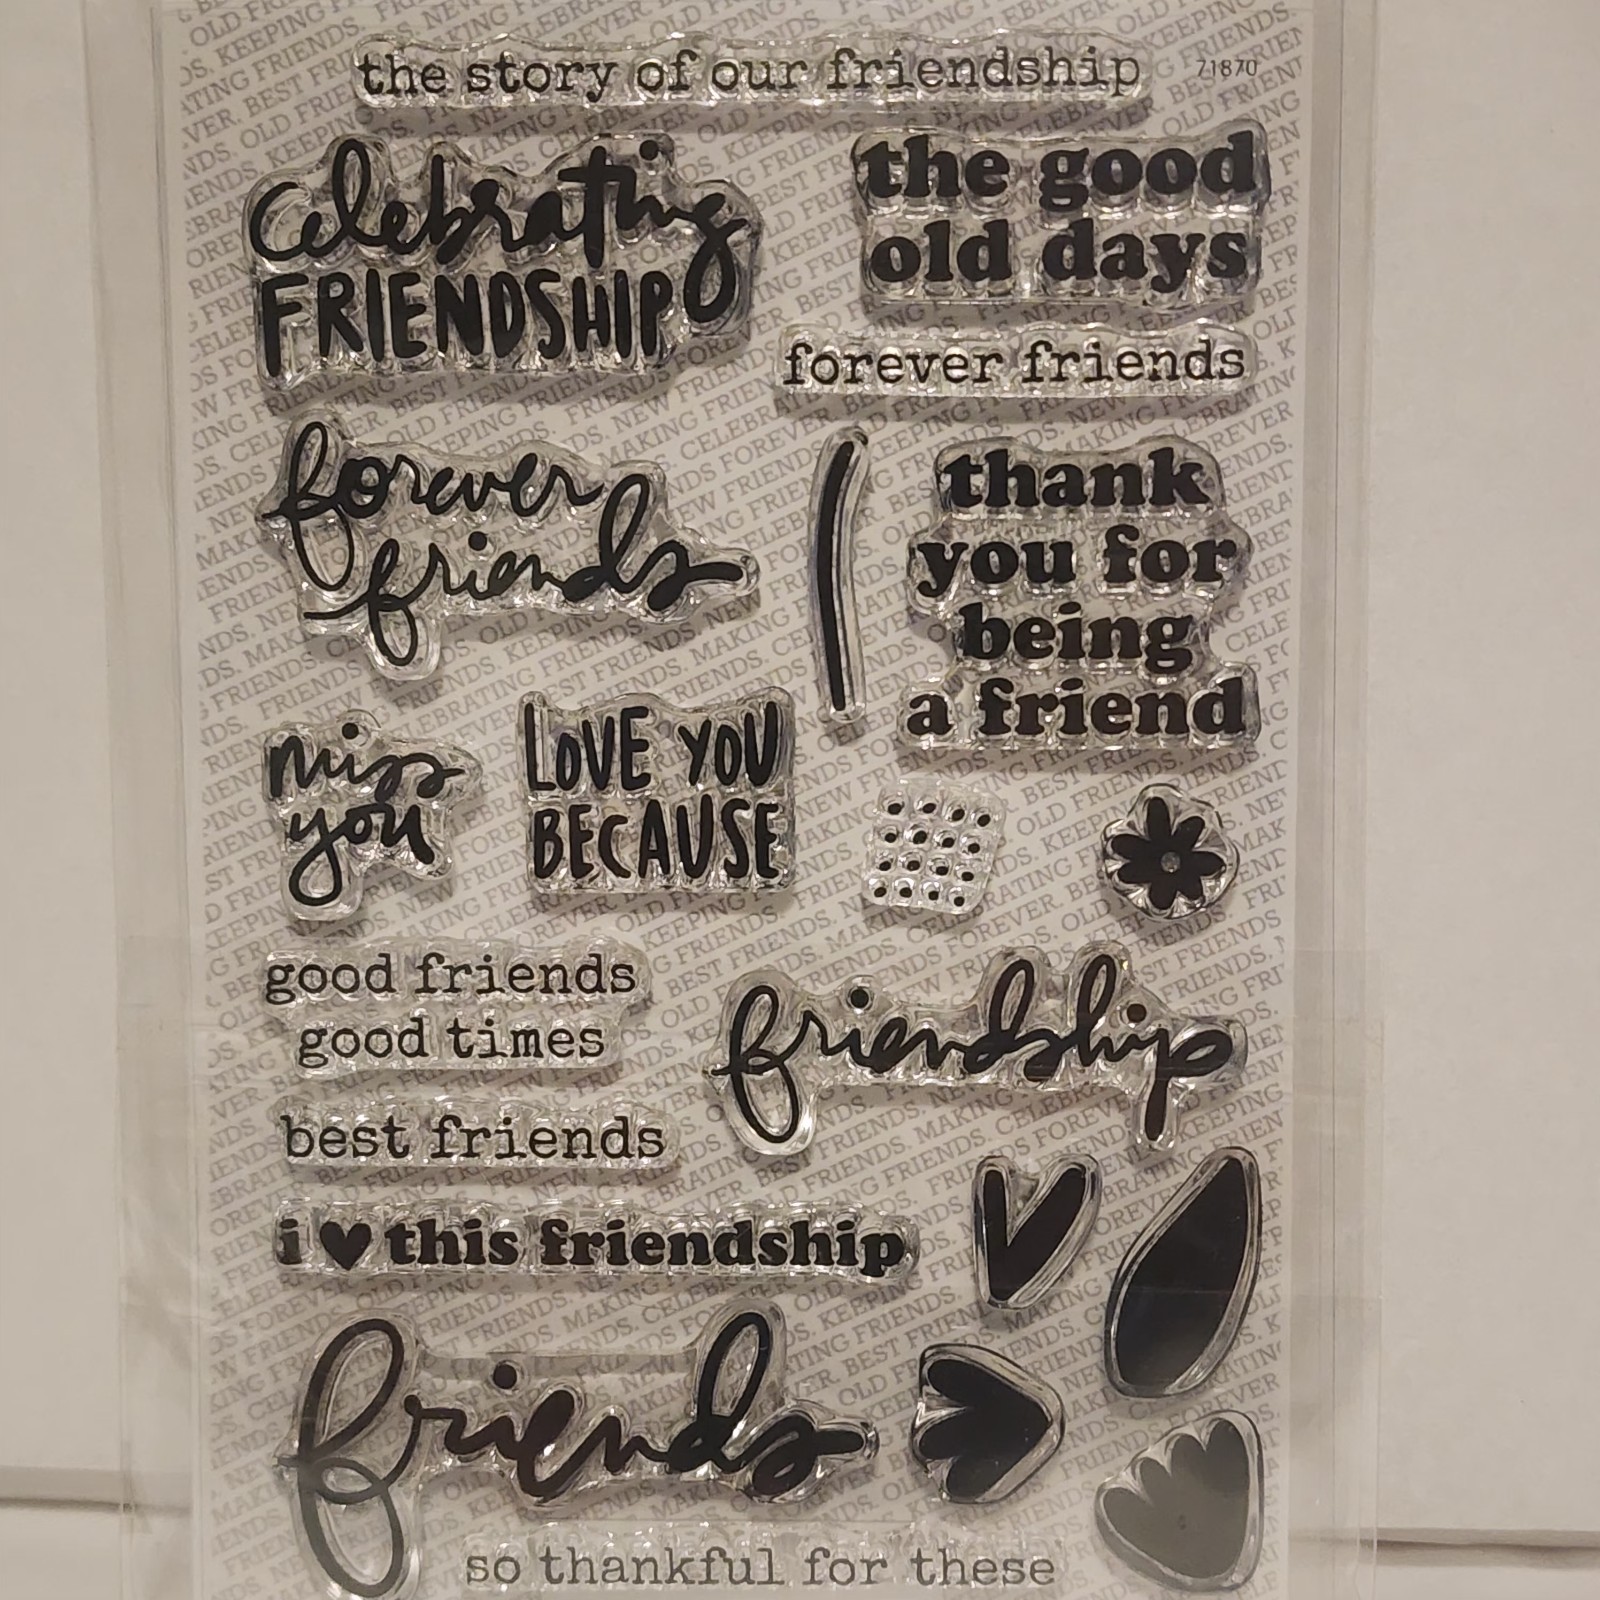 the story of our friendship
71870
celebrating
FRIENDSHIP
the good
old days
forever friends
forever
friends
thank
you for
being
a friend
miss
you
LOVE YOU
BECAUSE
good friends
good times
friendship
best friends
i ♥ this friendship
friends
so thankful for these